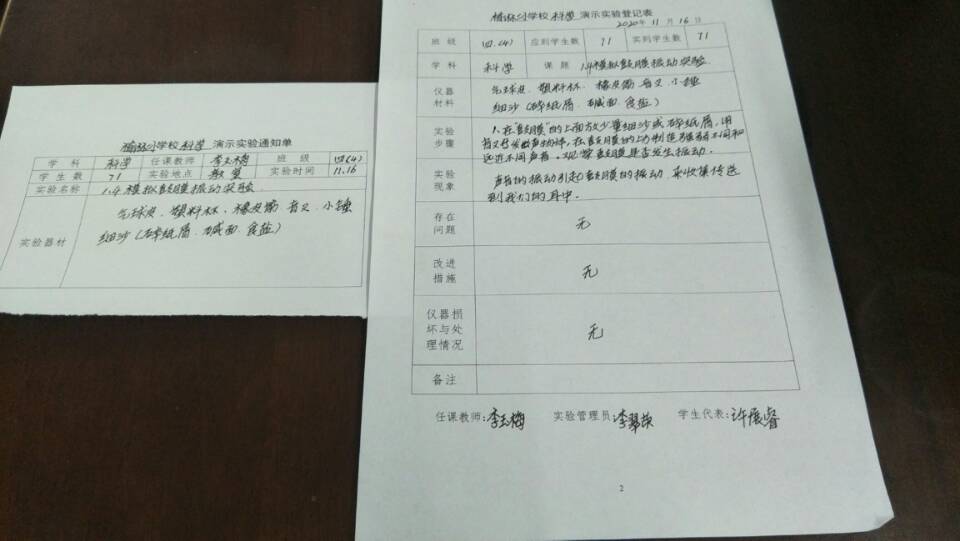 榆林小学校 科学 演示实验通知单
学 科 科学 任课教师 李玉梅 班 级 四(4)
学 生 数 71 实验地点 教室 实验时间 11.16
实验名称 1.4模拟鼓膜振动实验
实验器材 气球皮、塑料杯、橡皮筋 音叉、小锤
细沙(碎纸屑、碱面、食盐)
榆林小学校 科学 演示实验登记表
2020年11月16日
班 级 四.(4) 应到学生数 71 实到学生数 71
学 科 科学 课 题 1.4模拟鼓膜振动实验
仪器材料 气球皮、塑料杯、橡皮筋 音叉、小锤
细沙(碎纸屑、碱面、食盐)
实验步骤 1、在"鼓膜"的上面放少量细沙或碎纸屑,用
音叉等发声物体,在鼓膜的上方制造强弱不同和
远近不同声音。观察鼓膜是否发生振动。
实验现象 声音的振动引起鼓膜的振动,来收集传送
到我们的耳中。
存在问题 无
改进措施 无
仪器损坏与处理情况 无
备注
任课教师:李玉梅 实验管理员:李翠萍 学生代表:许展睿
2